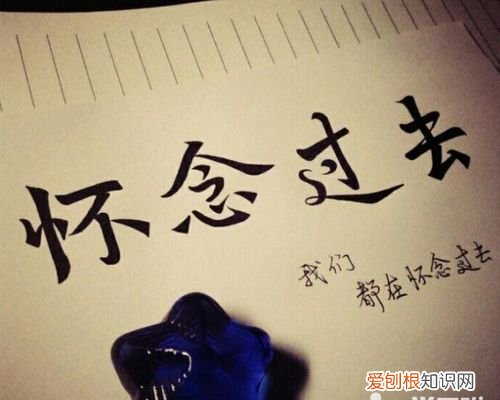 怀念过去
我们
都在怀念过去
爱刨根知识网